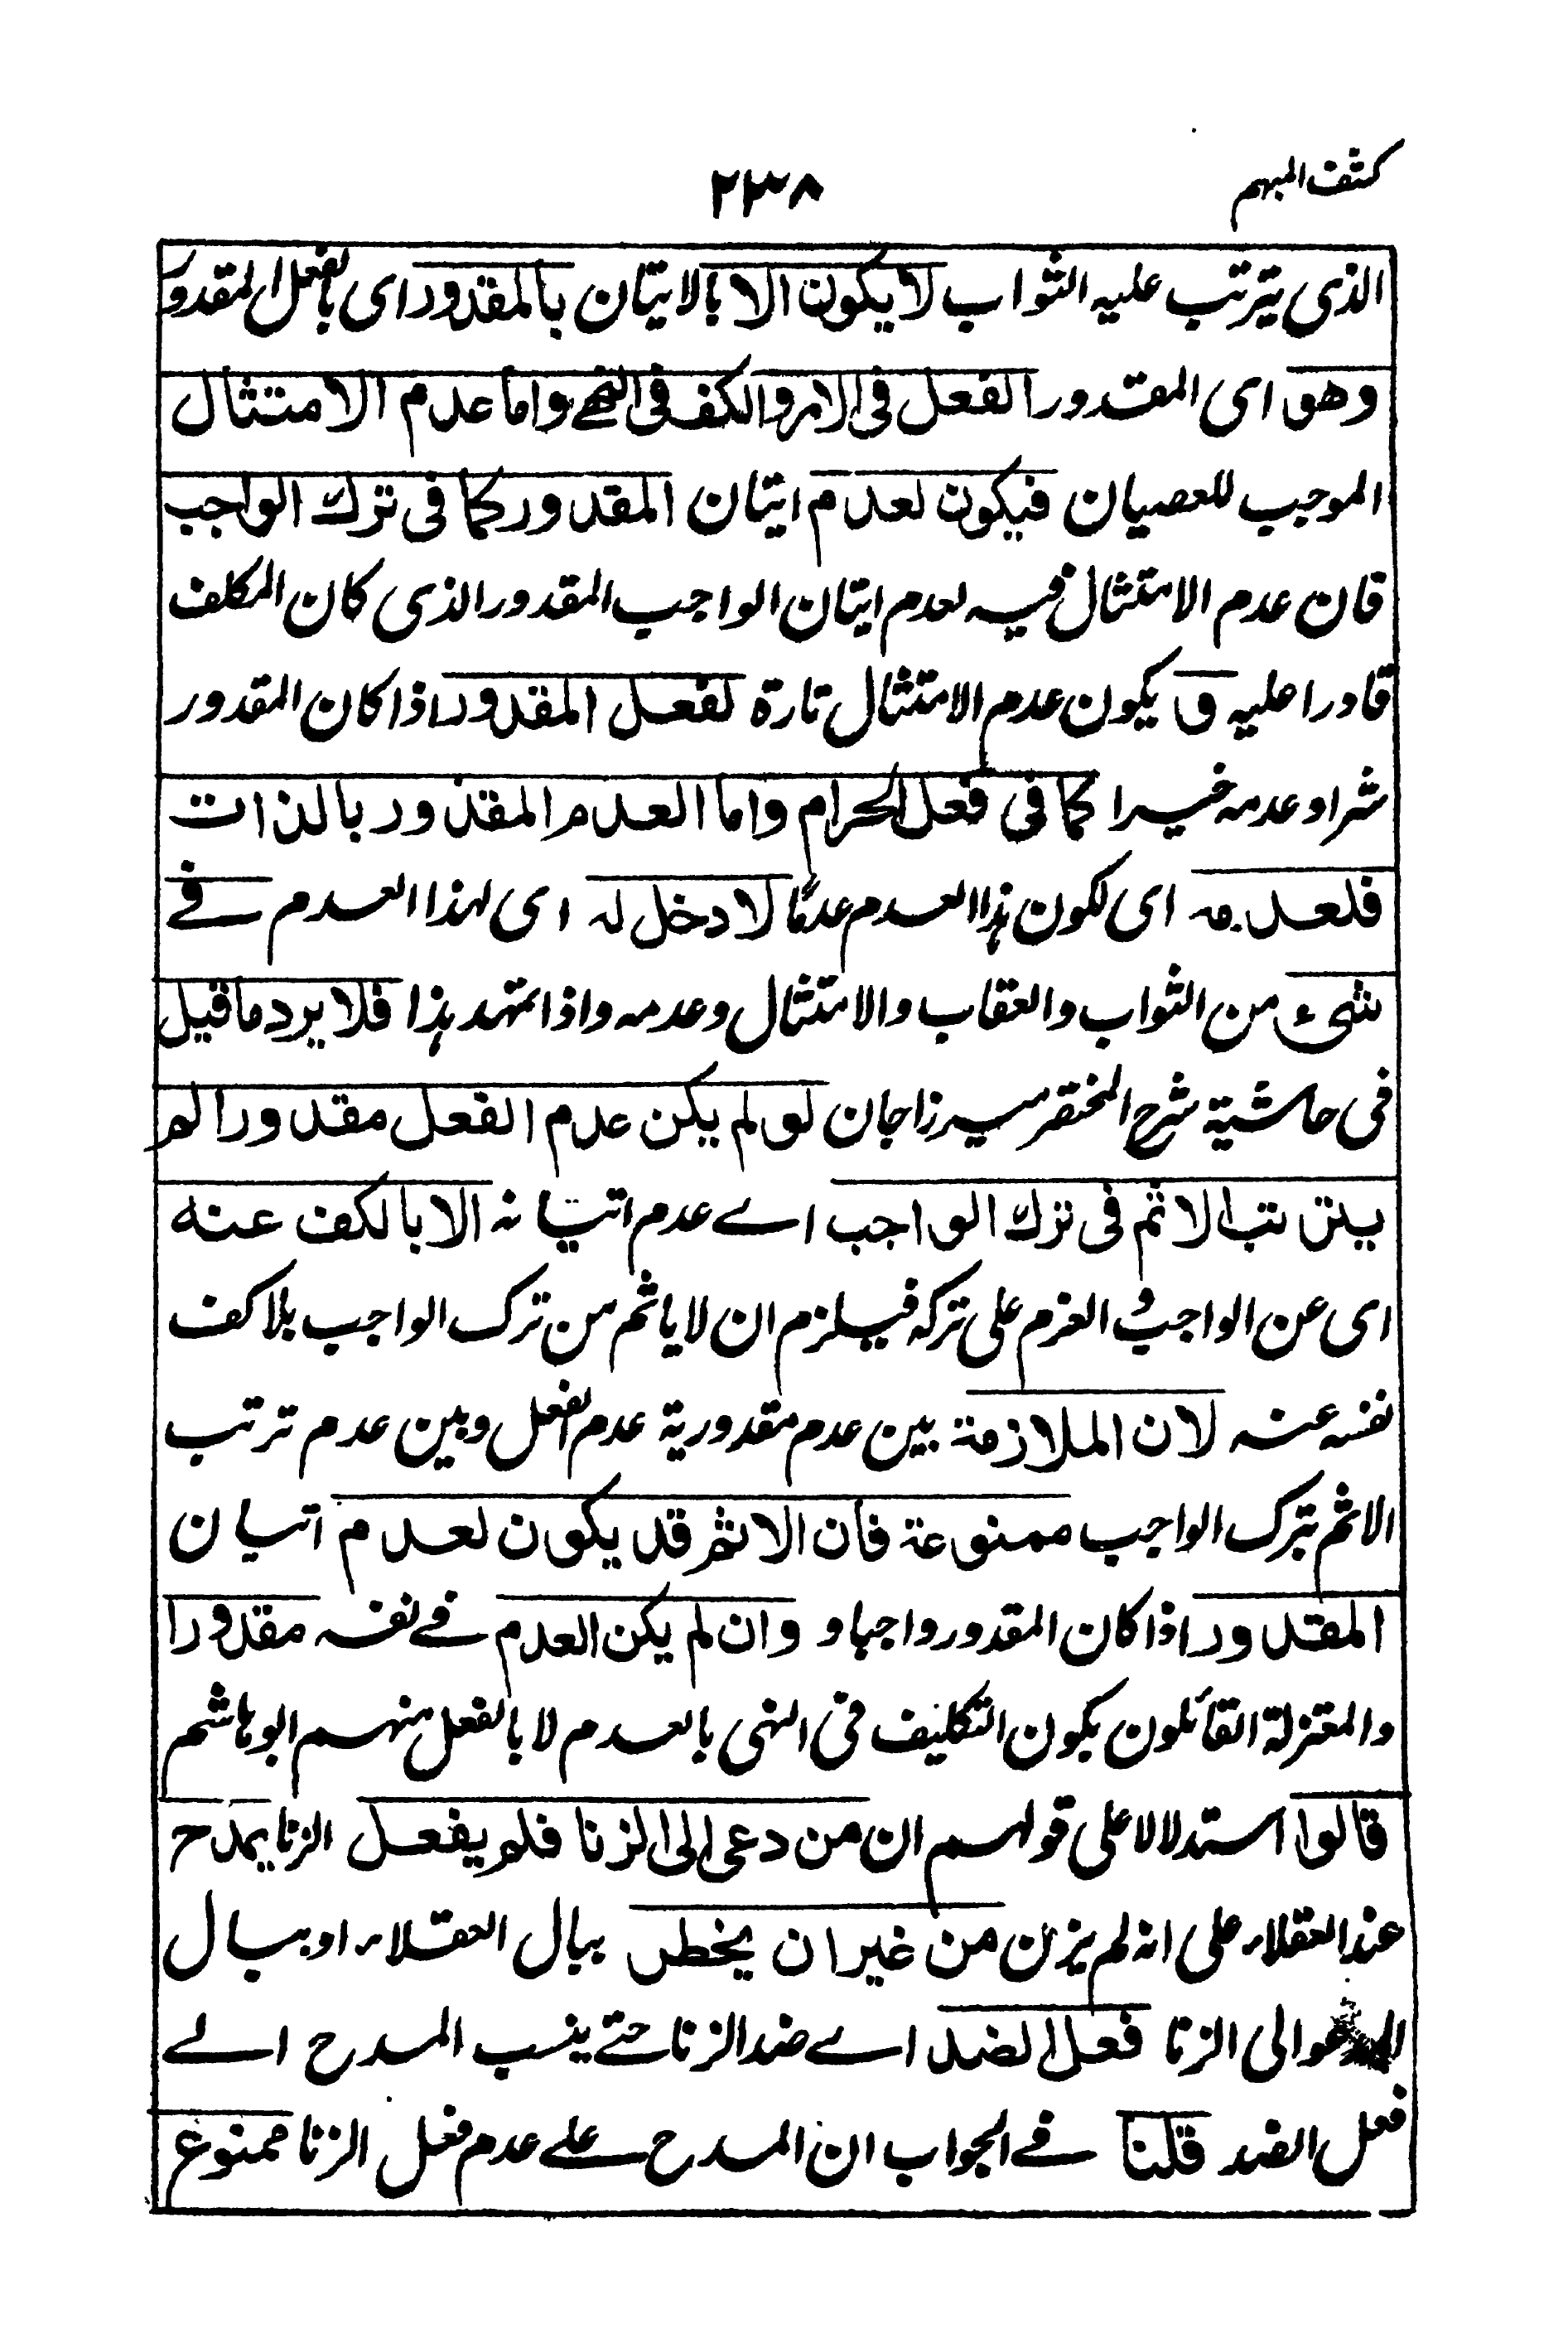 كشف المبهم
٢٣٨
الذى يترتب عليه الثواب لا يكون الا بالاتيان بالمقدور اى بالفعل المقدور
وهو اى المقدور الفعل فى الامر والكف فى النهے واما عدم الامتثال
الموجب للعصيان فيكون لعدم ايتان المقدور كما فى ترك الواجب
فان عدم الامتثال فيه لعدم ايتان الواجب المقدور الذى كان المكلف
قادرا عليه و يكون عدم الامتثال تارة لفعل المقدور اذا كان المقدور
شرا وعدمه خيرا كما فى فعل الحرام واما العدم المقدور بالذات
فلعدمه اى لكون هذا العدم عدمًا لا دخل له اى لهذا العدم فے
شىء من الثواب والعقاب والامتثال وعدمه واذا تمهد هذا فلا يرد ما قيل
فى حاشية شرح المختصر ميرزاجان لو لم يكن عدم الفعل مقدورا لم
يترتب الاثم فى ترك الواجب اے عدم اتيانه الا بالكف عنه
اى عن الواجب و العزم على تركه فيلزم ان لا ياثم من ترك الواجب بلا كف
نفسه عنه لان الملازمة بين عدم مقدورية عدم الفعل وبين عدم ترتب
الاثم بترك الواجب ممنوعة فان الاثم قد يكون لعدم اتيان
المقدور اذا كان المقدور واجبا و وان لم يكن العدم فے نفسه مقدورا
والمعتزلة القائلون بكون التكليف فى النهى بالعدم لا بالفعل منهم ابو هاشم
قالوا استدلالا على قولهم ان من دعى الى الزنا فلم يفعل الزنا يمدح
عند العقلاء على انه لم يزن من غير ان يخطر ببال العقلاء او ببال
المدعو الى الزنا فعل الضد اے ضد الزنا حتے ينسب المدح الے
فعل الضد قلنا فے الجواب ان المدح علے عدم فعل الزنا ممنوع